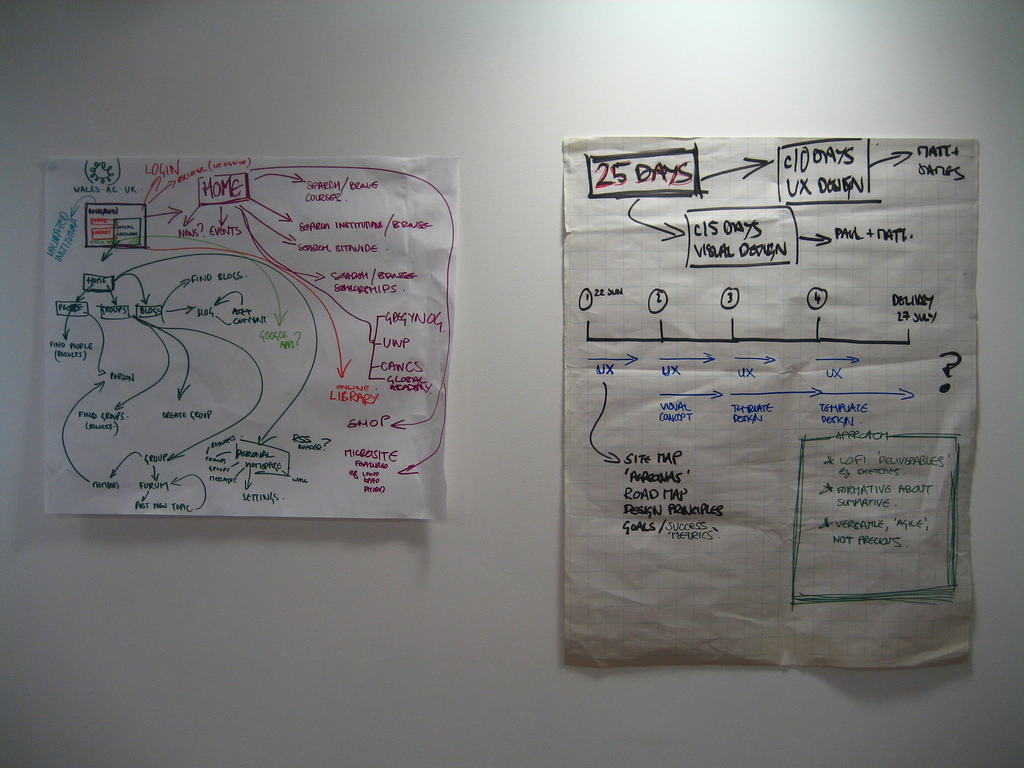 WALES·AC·UK·
VALIDATED
INSTITUTIONS
LOGIN
HOME
SEARCH/BROWSE
COURSES.
NEWS? EVENTS
SEARCH INSTITUTIONS/BROWSE
SEARCH SITEWIDE.
SEARCH/BROWSE
SCHOLARSHIPS.
GREGYNOG.
UWP
CAWCS
GLOBAL
ACADEMY
ONLINE
LIBRARY
SHOP
MICROSITE
FEATURES
HOME
PEOPLE
GROUPS
BLOGS
FIND BLOGS.
BLOG
POST
COMMENT
GOOGLE
APPS?
FIND PEOPLE
(RESULTS)
PERSON
FIND GROUPS.
(RESULTS.)
CREATE GROUP
GROUP
FORUM
POST NEW TOPIC
PERSONAL
HOMEPAGE
WALL
SETTINGS.
RSS
READER?
25 DAYS
c10 DAYS
UX DESIGN
MATT +
JAMES
c15 DAYS
VISUAL DESIGN
PAUL + MATT.
1 22 JUN
2
3
4
DELIVERY
27 JULY
UX
UX
UX
UX
?
VISUAL
CONCEPT
TEMPLATE
DESIGN.
TEMPLATE
DESIGN.
SITE MAP
'PERSONAS'
ROAD MAP
DESIGN PRINCIPLES
GOALS/SUCCESS
'METRICS'
APPROACH
LOFI 'DELIVERABLES'
eg SKETCHES.
FORMATIVE ABOUT
SUMMATIVE.
VERSATILE, 'AGILE',
NOT PRECIOUS.